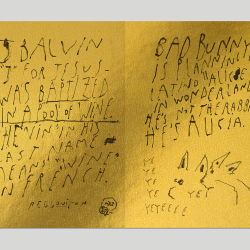 J BALVIN
IT FOR JESUS.
WAS BAPTIZED
IN A POOL OF WINE.
THE VIN IN HIS
LAST NAME
MEANS "WINE"
IN FRENCH.
REGGAETON
BAD BUNNY
IS PLANNING
LATINO "ALICE
IN WONDERLAND"
HE'S NOT THE RABBIT
HE'S ALICIA.
YE
YE
YE
YE
YEYEEEE